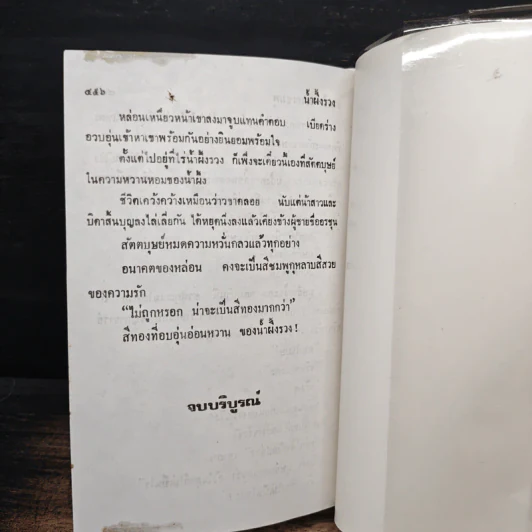 ๔๕๖
น้ำผึ้งรวง
หล่อนเหนี่ยวหน้าเขาลงมาจูบแทนคำตอบ เบียดร่าง
อวบอุ่นเข้าหาเขาพร้อมกันอย่างยินยอมพร้อมใจ
ตั้งแต่ไปอยู่ที่ไร่น้ำผึ้งรวง ก็เพิ่งจะเดี๋ยวนี้เองที่สัตตบุษย์
ในความหวานหอมของน้ำผึ้ง
ชีวิตเคว้งคว้างเหมือนว่าวขาดลอย นับแต่น้าสาวและ
บิดาสิ้นบุญลงไล่เลี่ยกัน ได้หยุดนิ่งลงแล้วเคียงข้างผู้ชายชื่ออรชุน
สัตตบุษย์หมดความหวั่นกลัวแล้วทุกอย่าง
อนาคตของหล่อน คงจะเป็นสีชมพูกุหลาบสีสวย
ของความรัก
“ไม่ถูกหรอก น่าจะเป็นสีทองมากกว่า”
สีทองที่อบอุ่นอ่อนหวาน ของน้ำผึ้งรวง!
จบบริบูรณ์